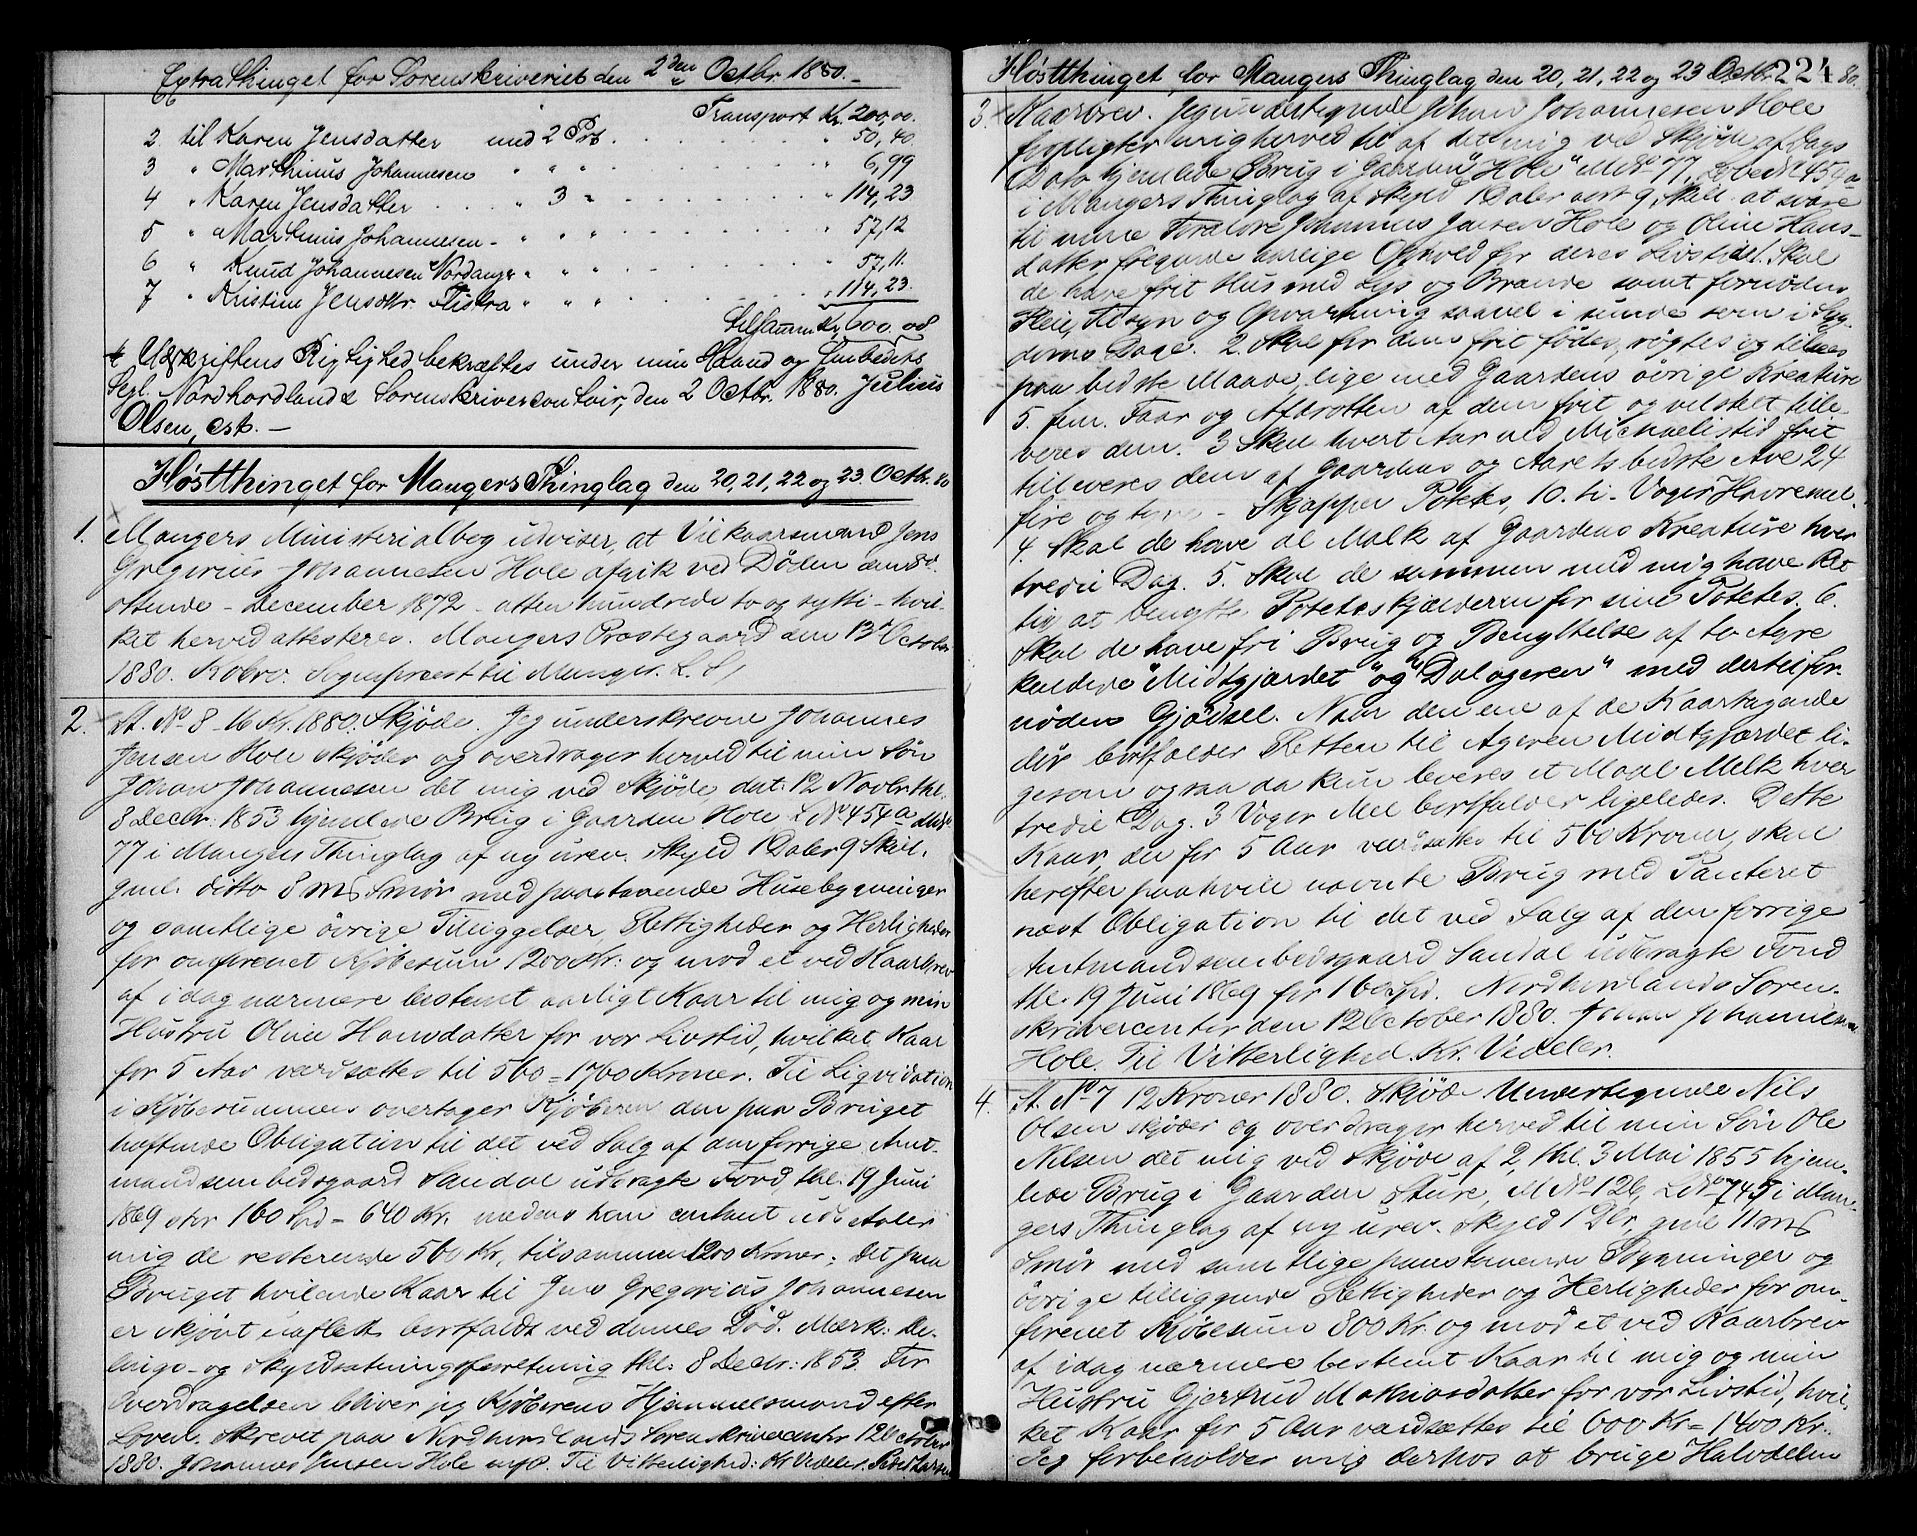 Extrathinget for Sorenskriveriet den 2den Octbr 1880.-
Transport Kr. 200,00.
2 til Karen Jensdatter med 2 Prt. " 50,40.
3 " Marthinus Johannesen " " " 6,99
4 " Karen Jensdatter " 3 " " 114,23
5 " Marthinus Johannesen - " " " " 57,12
6 " Knud Johannesen Nordanger " " " " 57,11.
7 " Kristine Jensdtr. Fistra " " " " 114,23.
Tilsammen Kr. 600.08
Udskriftens Rigtighed bekræftes under min Haand og Embeds
Segl. Nordhordlands Sorenskrivercontoir, den 2 Octbr. 1880. Julius
Olsen, cst. -
Høstthinget for Mangers Thinglag den 20, 21, 22 og 23 Octbr. 80
1. Mangers Ministerialbog udviser, at Vilkaarsmand Jens
Gregorius Johannesen Hole afgik ved Døden den 8de
ottende - December 1872 - atten hundrede to og sytti - hvil-
ket herved attesteres. Mangers Præstegaard den 13de October
1880. Kobro. Sognepræst til Manger. L. S.
2. St. No 8 - 16 Kr. 1880. Skjøde. Jeg underskrevne Johannes
Jensen Hole skjøder og overdrager herved til min Søn
Johan Johannesen det mig ved Skjøde, dat. 12 Novbr. thl.
8 Decbr. 1853 hjemlede Brug i Gaarden Hole LNo 454a MNo
77 i Mangers Thinglag af ny urev. Skyld 1 Daler 9 Skill.
gml. ditto 8 mk Smør med paastaaende Husebygninger
og samtlige øvrige Tilliggelser, Rettigheder og Herligheder
for omforenet Kjøbesum 1200 Kr. og mod et ved Kaarbrev
af i dag nærmere bestemt aarligt Kaar til mig og min
Hustru Oline Hansdatter for vor Livstid, hvilket Kaar
for 5 Aar værdsættes til 560 = 1760 Kroner. Til Liqvidation
i Kjøbesummens overtager Kjøberen den paa Bruget
hæftende Obligation til det ved Salg af den forrige Amt-
mandsembedsgaard Sandal udbragte Fond, thl. 19 Juni
1869 stor 160 Spd = 640 Kr. medens han contant udbetaler
mig de resterende 560 Kr, tilsammen 1200 Kroner; det paa
Bruget hvilende Kaar til Jens Gregorius Johannesen
er skjønt uaflett bortfaldt ved dennes Død. Mærk: De-
lings- og Skyldsætningsforretning thl: 8 Decbr: 1853. For
Overdragelsen bliver jeg Kjøberens Hjemmelsmand efter
Loven. Skrevet paa Nordhordlands Sorenskrivercontor 12 October
1880. Johannes Jensen Hole mfP. Til Vitterlighed: Kr Vedeler.
Høstthinget for Mangers Thinglag den 20, 21, 22 og 23 Octbr. 80.
224
3. Kaarbrev. Jeg undertegnede Johan Johannesen Hole
forpligter mig herved til af det mig ved Skjøde af Dags
Dato hjemlede Brug i Gaarden "Hole" MNo 77, LøbeNo 454a
i Mangers Thinglag af Skyld 1 Daler ort 9 Skill. at svare
til mine Forældre Johannes Jensen Hole og Oline Hans-
datter følgende aarlige Ophold for deres Livstid 1. Skal
de have frit Hus med Lys og Brænde samt fornøden
Pleie, Tilsyn og Opvartning saavel i sunde som i Syg-
doms Dage. 2. Skal for dem frit fødes, røgtes og tilsees
paa bedste Maade, lige med Gaardens øvrige Kreature
5. fem. Faar og Afdrotten af dem frit og velstelt tille-
veres dem. 3 Skal hvert Aar ved Michaelistid frit
tilleveres dem af Gaardens og Aarets bedste Avl 24
fire og tyve - Skjæpper Potetes, 10. ti - Voger Havremel.
4. Skal de have al Malk af Gaardens Kreature hver
tredie Dag. 5. Skal de sammen med mig have Ret
til at benytte Poteteskjælderen for sine Potetes. 6.
Skal de have fri Brug og Benyttelse af to Agre
kaldede "Midtgjærdet" og "Dalageren" med dertil for-
nøden Gjødsel. Naar den ene af de Kaartagende
dør bortfalder Retten til Ageren Midtgjærdet li-
gesom ogsaa da kun leveres et Maal Melk hver
tredie Dag. 3 Voger Mel bortfalder ligeledes. Dette
Kaar der for 5 Aar værdsættes til 560 Kroner, skal
herefter paahvile nævnte Brug med Panteret
næst Obligation til det ved Salg af den forrige
Amtmandsembedsgaard Sandal udbragte Fond
thl. 19 Juni 1869 for 160 Spd. Nordhordlands Soren-
skrivercontor den 12 October 1880. Johan Johannesen
Hole. Til Vitterlighed. Kr. Vedeler.
4. St. No 7 12 Kroner 1880. Skjøde Undertegnede Nils
Olsen skjøder og overdrager herved til min Søn Ole
Nilsen det mig ved Skjøde af 2, thl. 3 Mai 1855 hjem-
lede Brug i Gaarden Sture, MNo 126, LNo 745 i Man-
gers Thinglag af ny urev. Skyld 1 Dlr. gml 11 mk
Smør med samtlige paastaaende Bygninger og
øvrige tilliggende Rettigheder og Herligheder for om-
forenet Kjøbesum 800 Kr. og mod et ved Kaarbrev
af idag nærmere bestemt Kaar til mig og min
Hustru Gjertrud Mathiasdatter for vor Livstid, hvil-
ket Kaar for 5 Aar værdsættes til 600 Kr = 1400 Kr.
Jeg forbeholder mig derhos at bruge Halvdelen